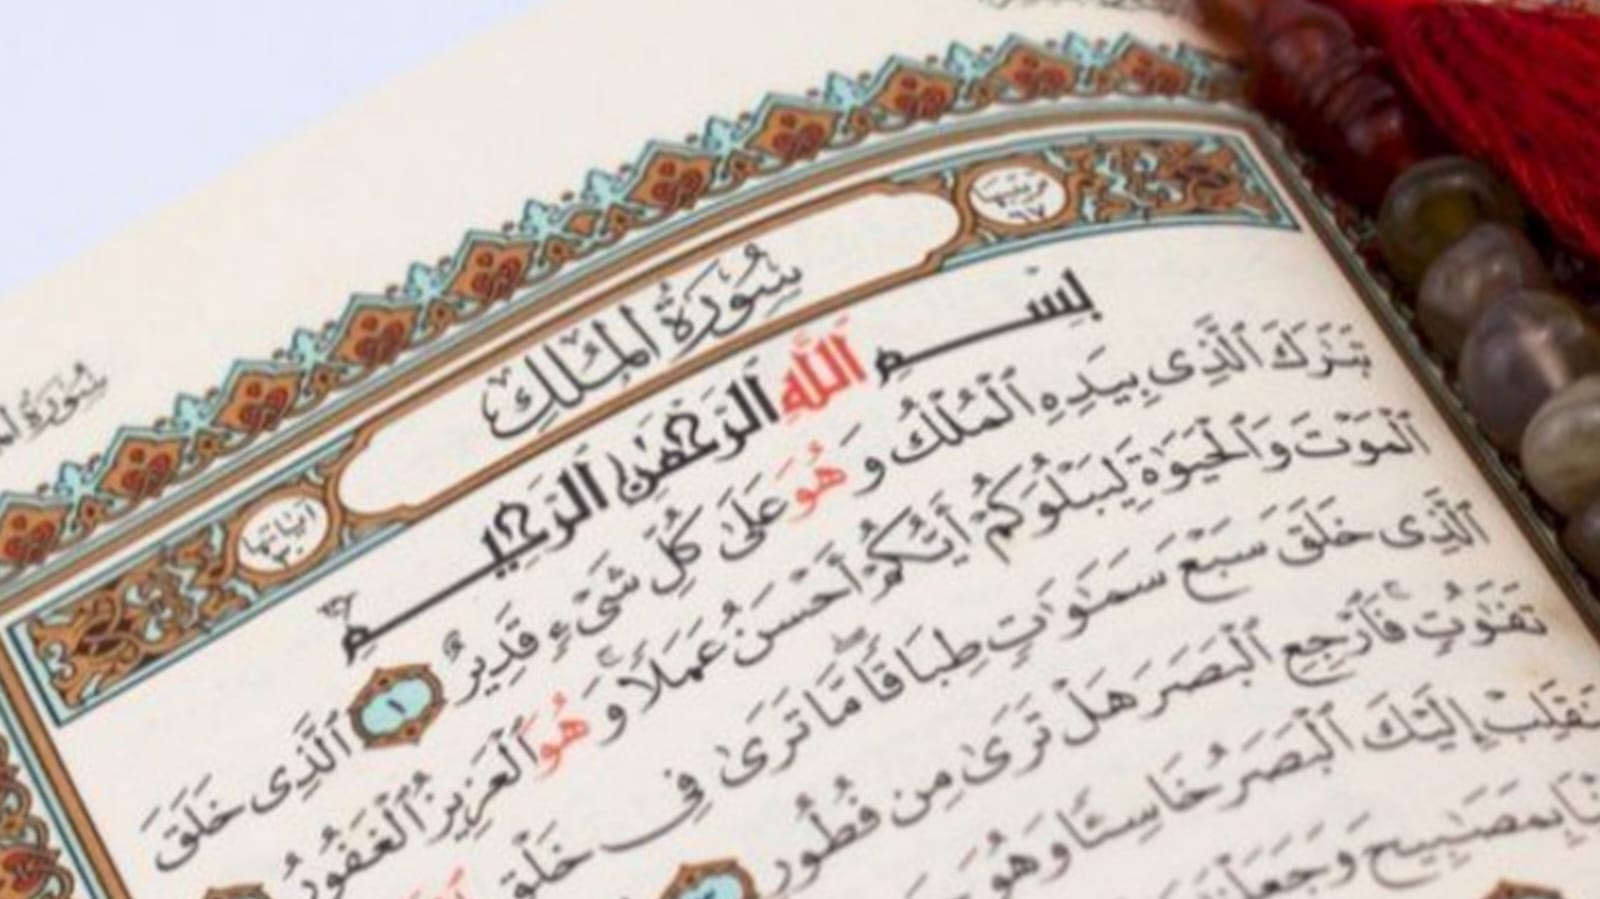 سُورَةُ الْمُلْكِ
ترتيبها ٦٧
آياتها ٣٠
بِسْمِ اللَّهِ الرَّحْمَٰنِ الرَّحِيمِ
تَبَٰرَكَ ٱلَّذِى بِيَدِهِ ٱلْمُلْكُ وَهُوَ عَلَىٰ كُلِّ شَىْءٍ قَدِيرٌ ١ ٱلَّذِى خَلَقَ
ٱلْمَوْتَ وَٱلْحَيَوٰةَ لِيَبْلُوَكُمْ أَيُّكُمْ أَحْسَنُ عَمَلًا وَهُوَ ٱلْعَزِيزُ ٱلْغَفُورُ
ٱلَّذِى خَلَقَ سَبْعَ سَمَٰوَٰتٍ طِبَاقًا مَّا تَرَىٰ فِى خَلْقِ
تَفَٰوُتٍ فَٱرْجِعِ ٱلْبَصَرَ هَلْ تَرَىٰ مِن فُطُورٍ
يَنقَلِبْ إِلَيْكَ ٱلْبَصَرُ خَاسِئًا وَهُوَ
بِمَصَٰبِيحَ